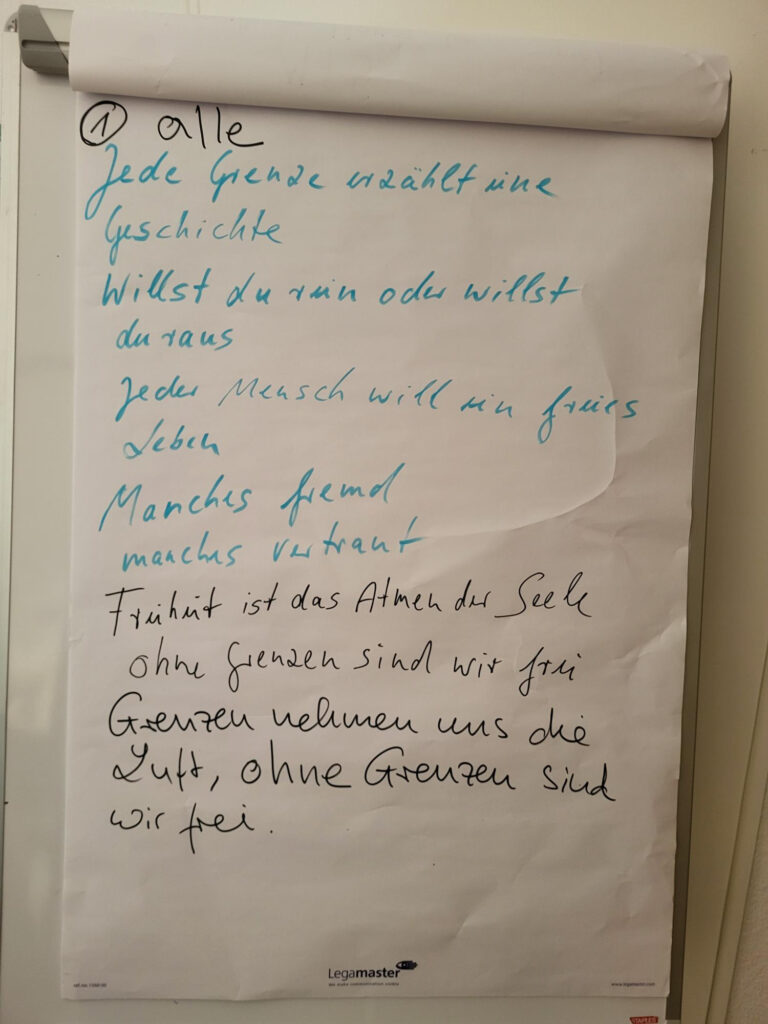 ① alle
Jede Grenze erzählt eine
Geschichte
Willst du rein oder willst
du raus
Jeder Mensch will ein freies
Leben
Manches fremd
manches vertraut
Freiheit ist das Atmen der Seele
ohne Grenzen sind wir frei
Grenzen nehmen uns die
Luft, ohne Grenzen sind
wir frei.
Legamaster
www.legamaster.com
STAPLES